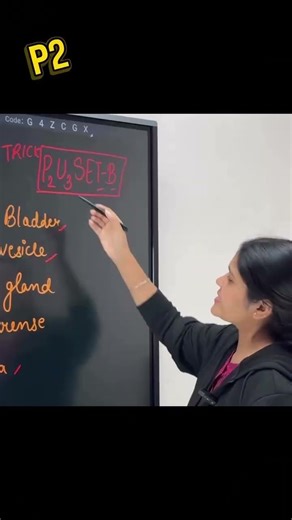 P2
Code: G 4 Z C G X
TRICK P₂U₃SET-B
Bladder
vesicle
gland